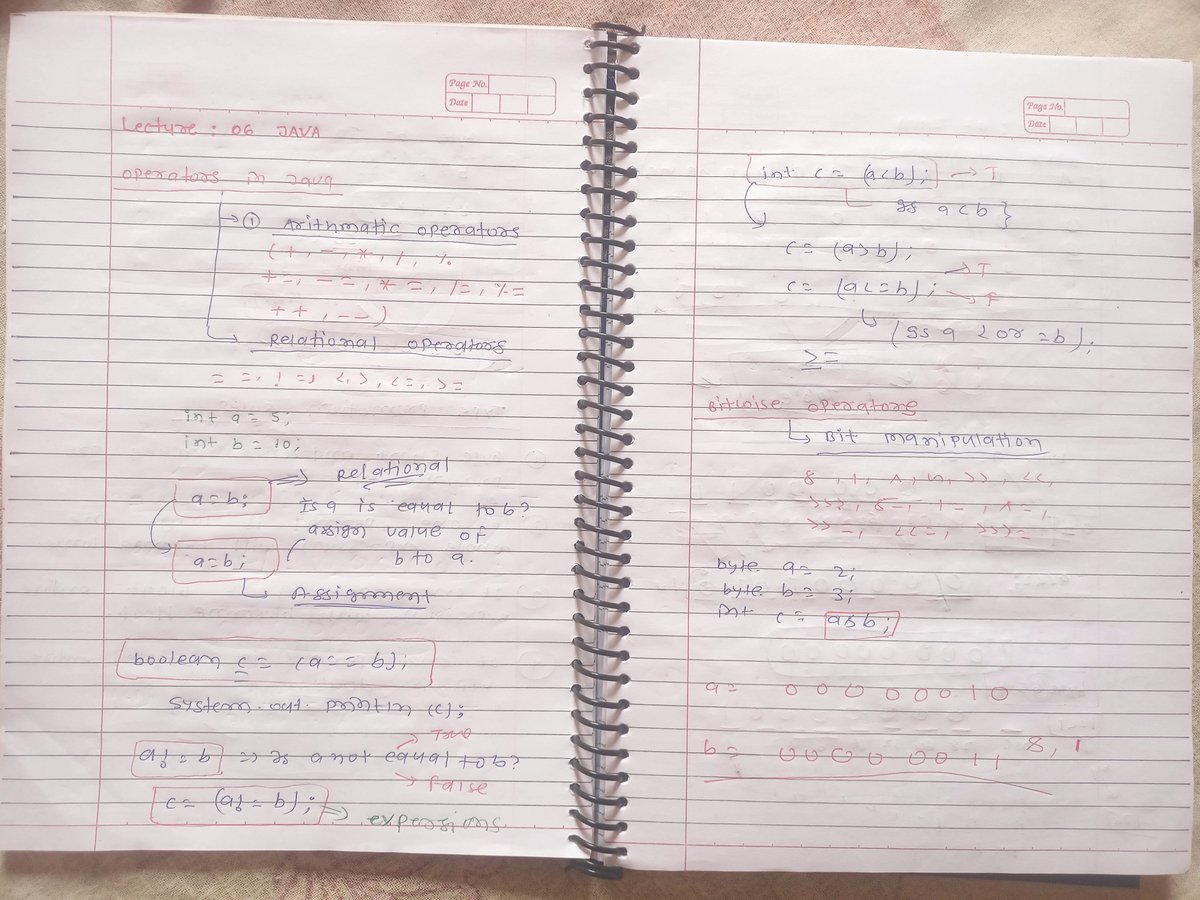 Page No.
Date
Lecture : 06 JAVA
operators in Java
① Arithmatic operators
(+, -, *, /, %
+=, -=, *=, /=, %=
++, --)
Relational operators
==, !=, <, >, <=, >=
int a = 5;
int b = 10;
a=b; ⇒ Relational
Is a is equal to b?
assign value of
a=b; b to a.
Assignment
boolean c = (a== b);
System.out.println (c);
True
a!=b => Is a not equal to b?
False
c = (a!=b); → expersions
Page No.
Date
int c = (a<b); → T
Is a<b}
c = (a>b);
→ T
c = (a<=b); → F
(Is a < or =b);
>=
Bitwise operators
Bit manipulation
&, |, ^, ~, >>, <<,
>>>, &=, |=, ^=,
>>=, <<=, >>>=
byte a = 2;
byte b = 3;
Int c = a&b;
a= 0 0 0 0 0 0 1 0
b= 0 0 0 0 0 0 1 1 &, |